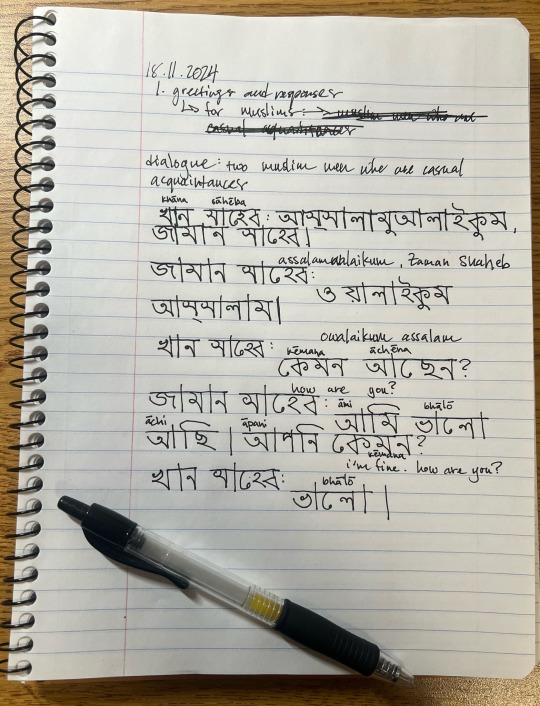 18.11.2024
1. greetings and responses
↳ for muslims: → muslim men who are
casual aquaintances
dialogue: two muslim men who are casual
acquaintances
khāna sāhēba
খান সাহেব: আস্সালামুআলাইকুম,
জামান সাহেব।
assalamualaikum, Zaman Shaheb
জামান সাহেব:
ওয়ালাইকুম
আস্সালাম।
owalaikum assalam
খান সাহেব:
kēmana āchēna
কেমন আছেন?
how are you?
জামান সাহেব: āmi bhālō
আমি ভালো
āchi āpani
আছি। আপনি কেমন?
kēmana
i'm fine. how are you?
খান সাহেব:
bhālō
ভালো।